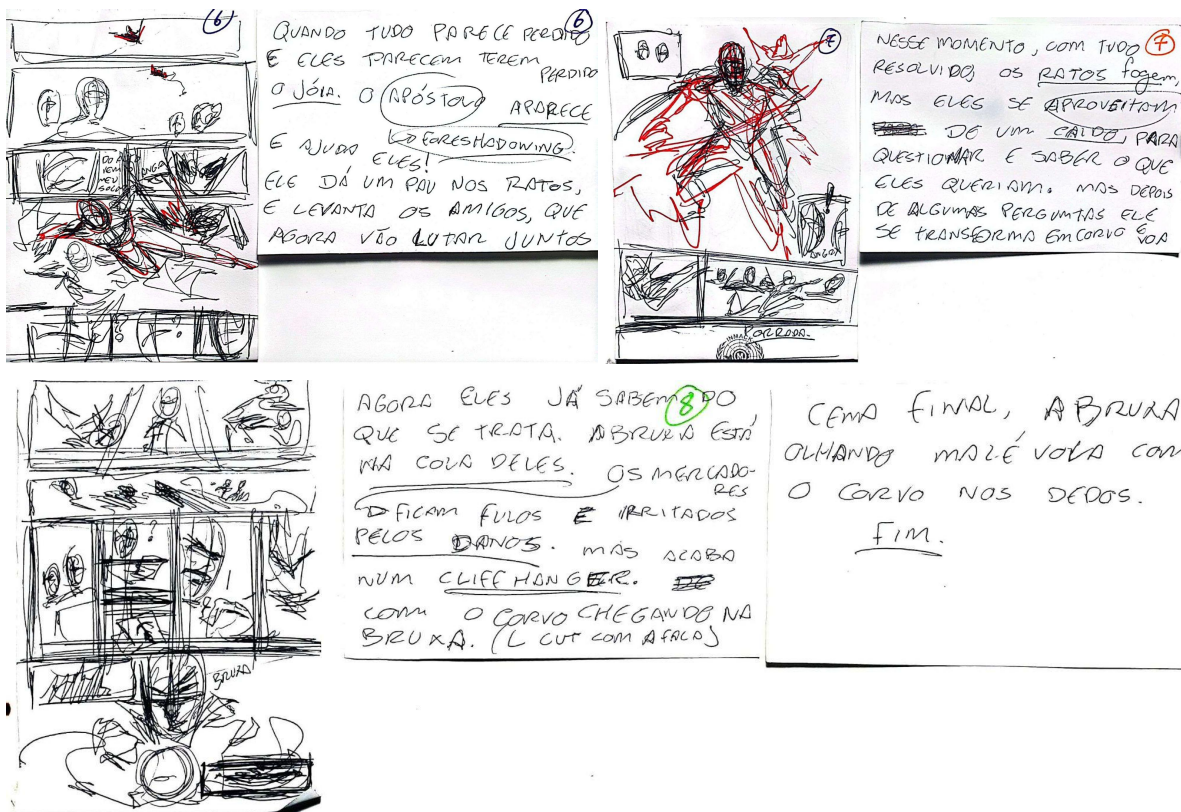 6
DO ALTO
VEM
MEU
SOCO!
ANGRA
6
QUANDO TUDO PARECE PERDIDO
E ELES PARECEM TEREM
PERDIDO
O JÓIA. O APÓSTOLO APARECE
FORESHADOWING.
E AJUDA ELES!
ELE DÁ UM PAU NOS RATOS,
E LEVANTA OS AMIGOS, QUE
AGORA VÃO LUTAR JUNTOS
7
!
ANGRA
PORRADA.
NESSE MOMENTO, COM TUDO 7
RESOLVIDO, OS RATOS fogem,
MAS ELES SE APROVEITAM
DE UM CAÍDO, PARA
QUESTIONAR E SABER O QUE
ELES QUERIAM. MAS DEPOIS
DE ALGUMAS PERGUNTAS ELE
SE TRANSFORMA EM CORVO E
VOA
?
BRUXA
AGORA ELES JÁ SABEM DO 8
QUE SE TRATA. A BRUXA ESTÁ
NA COLA DELES. OS MERCADO-
RES
FICAM FULOS E IRRITADOS
PELOS DANOS. MAS ACABA
NUM CLIFFHANGER.
COM O CORVO CHEGANDO NA
BRUXA. (L CUT COM A FALA)
CENA FINAL, A BRUXA
OLHANDO MALÉVOLA COM
O CORVO NOS DEDOS.
FIM.